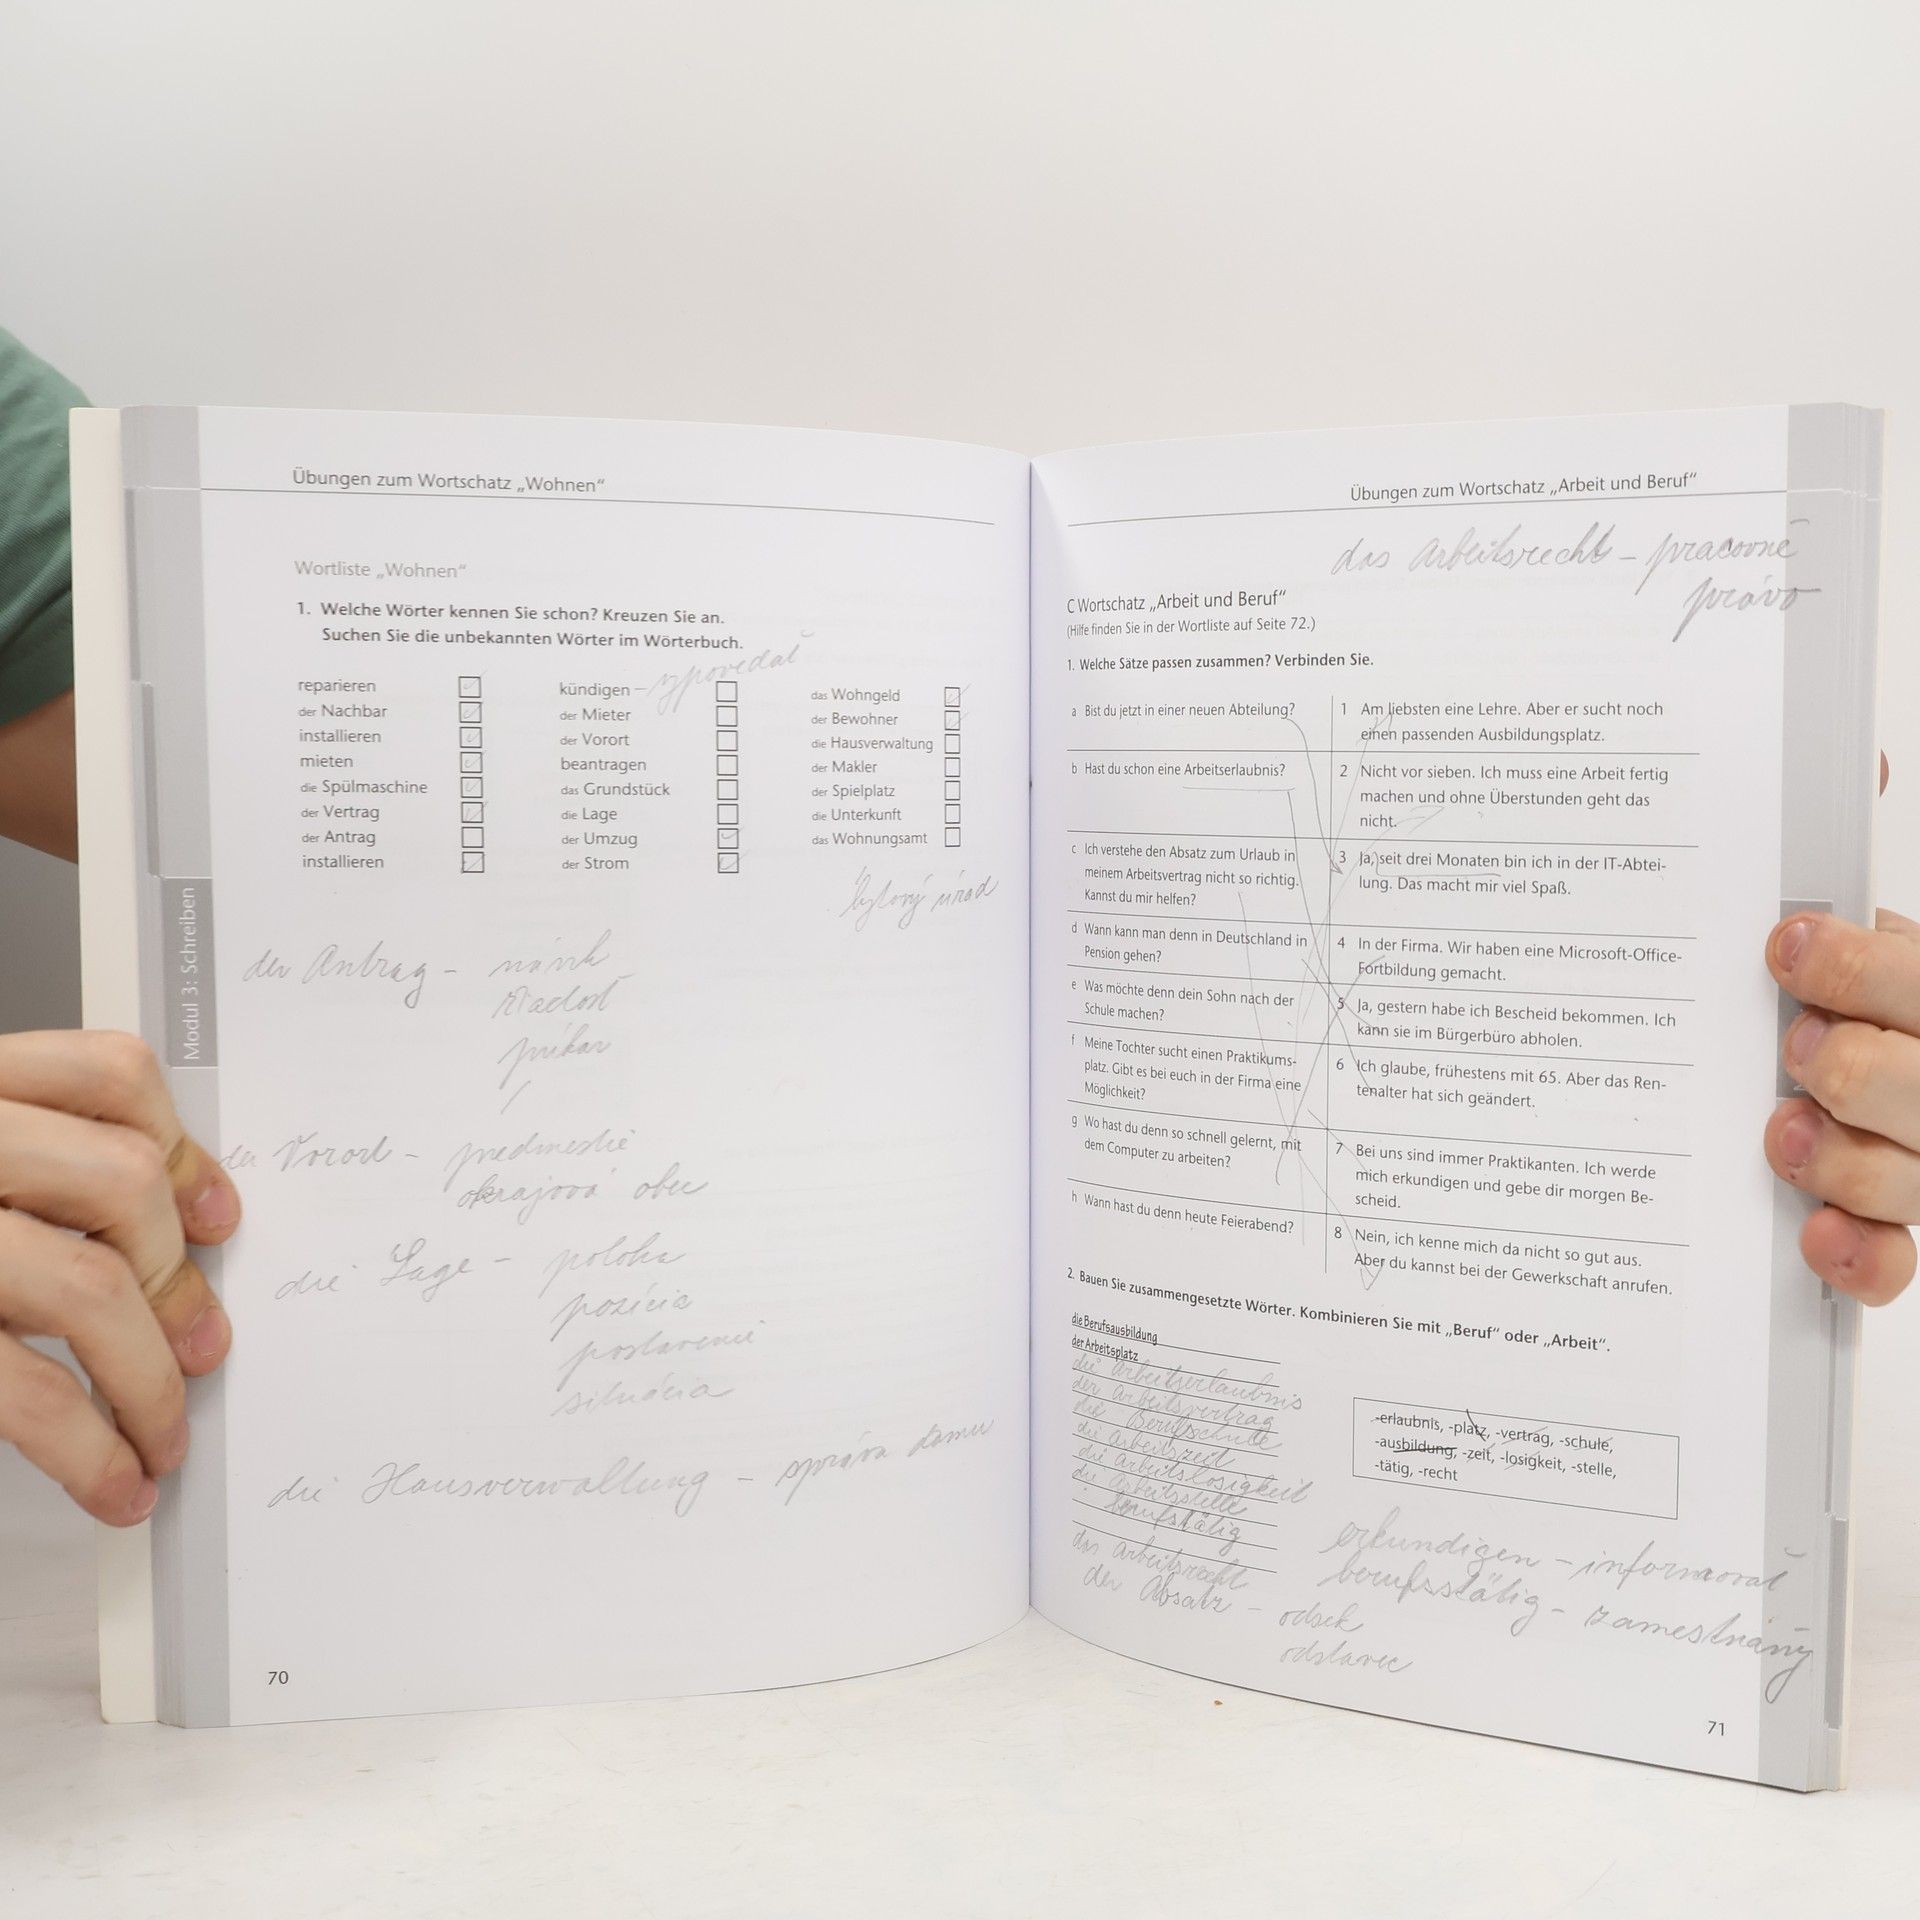 Übungen zum Wortschatz „Wohnen“
Wortliste „Wohnen“
1. Welche Wörter kennen Sie schon? Kreuzen Sie an.
Suchen Sie die unbekannten Wörter im Wörterbuch.
reparieren
der Nachbar
installieren
mieten
die Spülmaschine
der Vertrag
der Antrag
installieren
kündigen – vypovedať
der Mieter
der Vorort
beantragen
das Grundstück
die Lage
der Umzug
der Strom
das Wohngeld
der Bewohner
die Hausverwaltung
der Makler
der Spielplatz
die Unterkunft
das Wohnungsamt
bytový úrad
der Antrag – návrh
žiadosť
príkaz
der Vorort – predmestie
okrajová obec
die Lage – poloha
pozícia
postavenie
situácia
die Hausverwaltung – správa domu
Modul 3: Schreiben
70
Übungen zum Wortschatz „Arbeit und Beruf“
das Arbeitsrecht – pracovné
právo
C Wortschatz „Arbeit und Beruf“
(Hilfe finden Sie in der Wortliste auf Seite 72.)
1. Welche Sätze passen zusammen? Verbinden Sie.
a Bist du jetzt in einer neuen Abteilung?
b Hast du schon eine Arbeitserlaubnis?
c Ich verstehe den Absatz zum Urlaub in
meinem Arbeitsvertrag nicht so richtig.
Kannst du mir helfen?
d Wann kann man denn in Deutschland in
Pension gehen?
e Was möchte denn dein Sohn nach der
Schule machen?
f Meine Tochter sucht einen Praktikums-
platz. Gibt es bei euch in der Firma eine
Möglichkeit?
g Wo hast du denn so schnell gelernt, mit
dem Computer zu arbeiten?
h Wann hast du denn heute Feierabend?
1 Am liebsten eine Lehre. Aber er sucht noch
einen passenden Ausbildungsplatz.
2 Nicht vor sieben. Ich muss eine Arbeit fertig
machen und ohne Überstunden geht das
nicht.
3 Ja, seit drei Monaten bin ich in der IT-Abtei-
lung. Das macht mir viel Spaß.
4 In der Firma. Wir haben eine Microsoft-Office-
Fortbildung gemacht.
5 Ja, gestern habe ich Bescheid bekommen. Ich
kann sie im Bürgerbüro abholen.
6 Ich glaube, frühestens mit 65. Aber das Ren-
tenalter hat sich geändert.
7 Bei uns sind immer Praktikanten. Ich werde
mich erkundigen und gebe dir morgen Be-
scheid.
8 Nein, ich kenne mich da nicht so gut aus.
Aber du kannst bei der Gewerkschaft anrufen.
2. Bauen Sie zusammengesetzte Wörter. Kombinieren Sie mit „Beruf“ oder „Arbeit“.
die Berufsausbildung
der Arbeitsplatz
die Arbeitserlaubnis
der Arbeitsvertrag
die Berufsschule
die Arbeitszeit
die Arbeitslosigkeit
die Arbeitsstelle
berufstätig
das Arbeitsrecht
der Absatz – odsek
odstavec
-erlaubnis, -platz, -vertrag, -schule,
-ausbildung, -zeit, -losigkeit, -stelle,
-tätig, -recht
erkundigen – informovať
berufstätig – zamestnaný
71